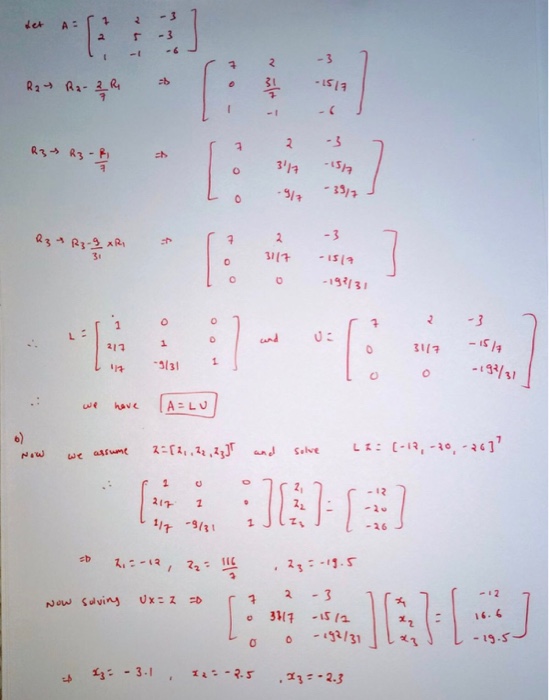 Let A = [ 7 2 -3
2 5 -3
1 -1 -6 ]
R2 → R2 - 2/7 R1 ⇒ [ 7 2 -3
0 31/7 -15/7
1 -1 -6 ]
R3 → R3 - R1/7 ⇒ [ 7 2 -3
0 31/7 -15/7
0 -9/7 -39/7 ]
R3 → R3 - 9/31 × R1 ⇒ [ 7 2 -3
0 31/7 -15/7
0 0 -192/31 ]
∴ L = [ 1 0 0
2/7 1 0
1/7 -9/31 1 ] and U = [ 7 2 -3
0 31/7 -15/7
0 0 -192/31 ]
∴ we have A = LU
b)
Now we assume Z = [Z1, Z2, Z3]T and solve LZ = [-12, -20, -26]T
∴ [ 1 0 0
2/7 1 0
1/7 -9/31 1 ] [ Z1
Z2
Z3 ] = [ -12
-20
-26 ]
⇒ Z1 = -12, Z2 = 116/7, Z3 = -19.5
Now solving Ux = Z ⇒ [ 7 2 -3
0 31/7 -15/7
0 0 -192/31 ] [ x1
x2
x3 ] = [ -12
16.6
-19.5 ]
⇒ x3 = -3.1, x2 = -2.5, x3 = -2.3